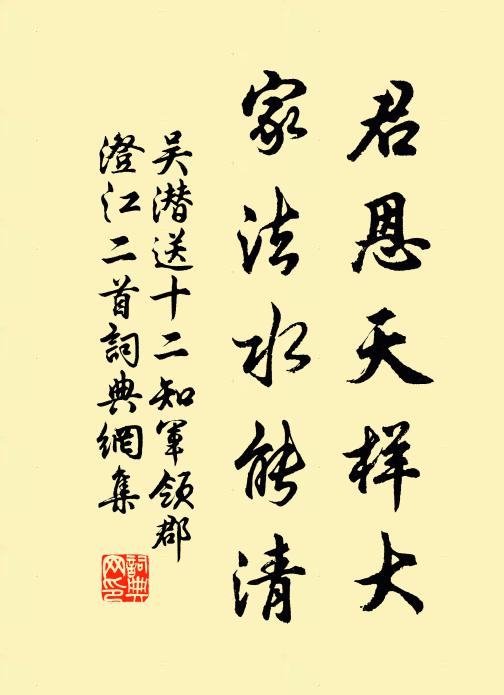 君恩天样大
家法水能清
吴潜送十二知军领郡
澄江二首詞典網集
詞典网印